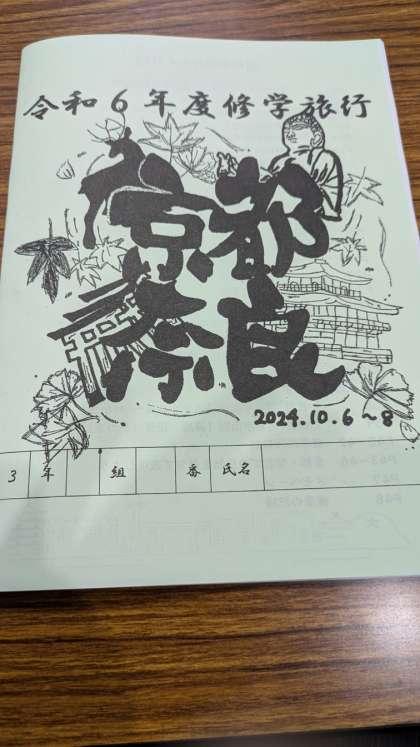 令和6年度修学旅行
京都
奈良
2024.10.6~8
3 年 組 番 氏名